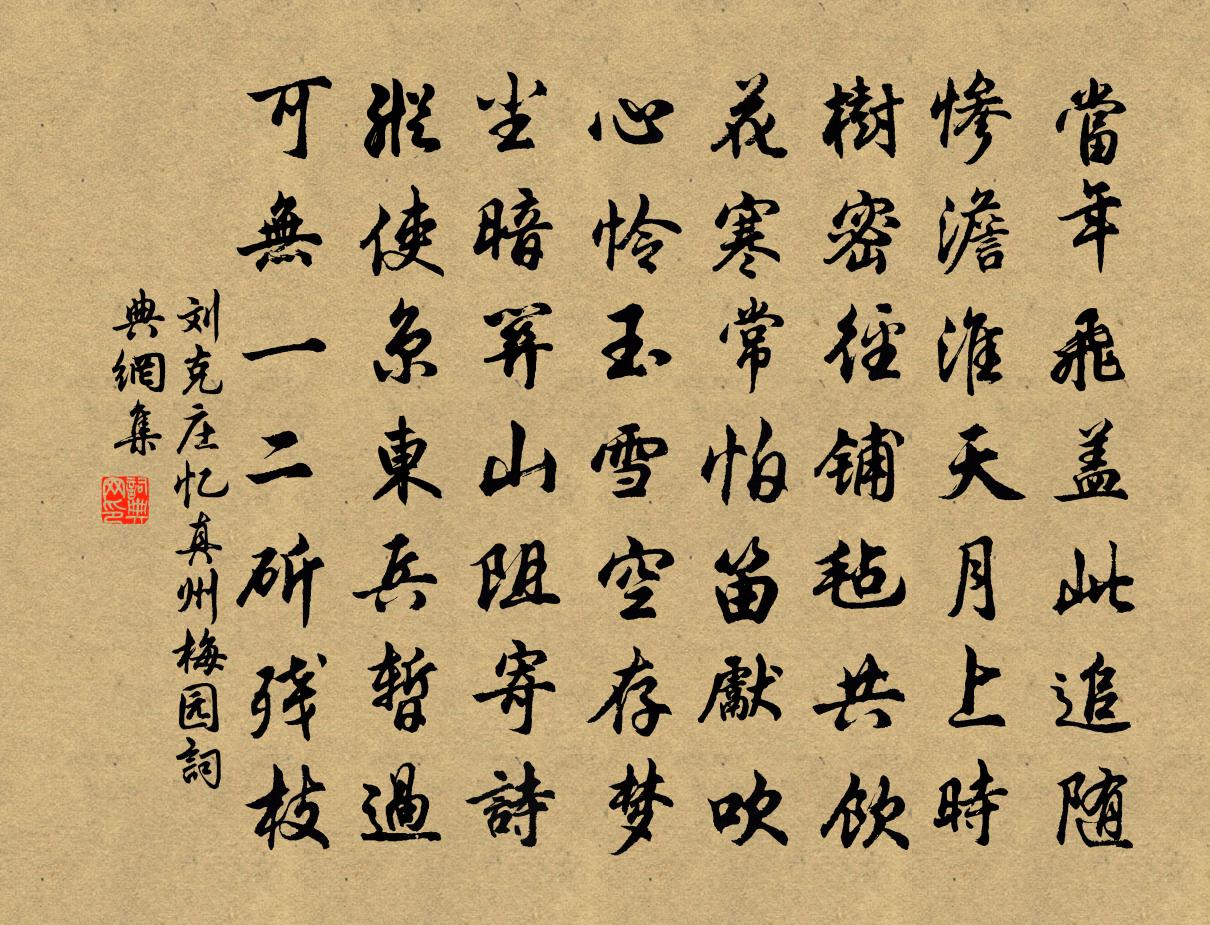 當年飛盖此追随
慘澹淮天月上時
樹密徑鋪毡共飲
花寒常怕笛獻吹
心怜玉雪空存梦
尘暗關山阻寄詩
縱使京東兵暫過
可無一二斫殘枝
刘克庄忆真州梅园詞
典網集
詞典网印